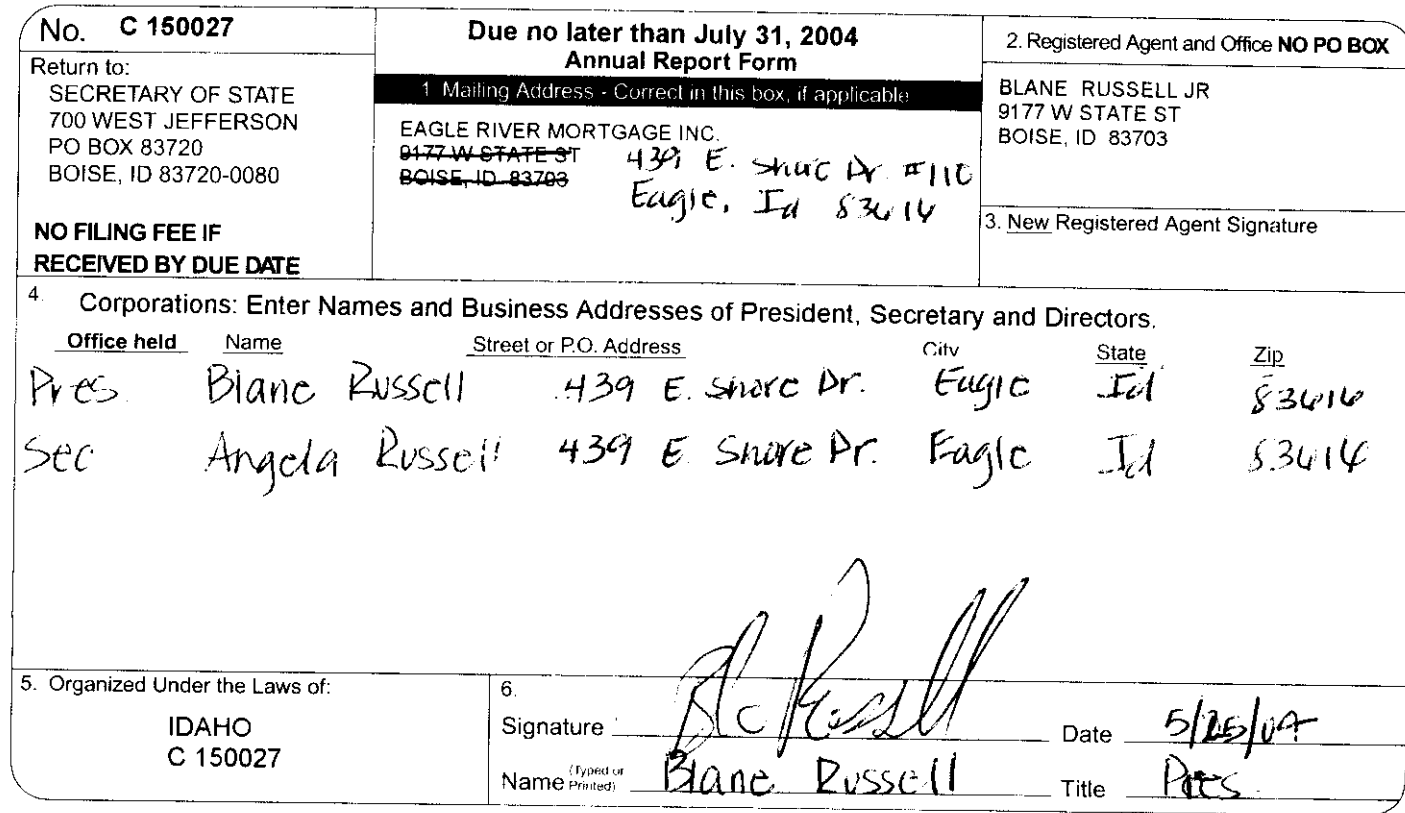 No. C 150027
Return to:
SECRETARY OF STATE
700 WEST JEFFERSON
PO BOX 83720
BOISE, ID 83720-0080
NO FILING FEE IF
RECEIVED BY DUE DATE
Due no later than July 31, 2004
Annual Report Form
1 Mailing Address - Correct in this box, if applicable
EAGLE RIVER MORTGAGE INC.
9177 W STATE ST
BOISE, ID 83703
439 E. Shore Dr. #110
Eagle, Id 83616
2. Registered Agent and Office NO PO BOX
BLANE RUSSELL JR
9177 W STATE ST
BOISE, ID 83703
3. New Registered Agent Signature
4. Corporations: Enter Names and Business Addresses of President, Secretary and Directors.
Office held Name Street or P.O. Address City State Zip
Pres. Blane Russell 439 E. Shore Dr. Eagle Id 83616
Sec Angela Russell 439 E Shore Dr. Eagle Id 83616
5. Organized Under the Laws of:
IDAHO
C 150027
6.
Signature Bl Russell Date 5/25/04
Name (Typed or Printed) Blane Russell Title Pres.